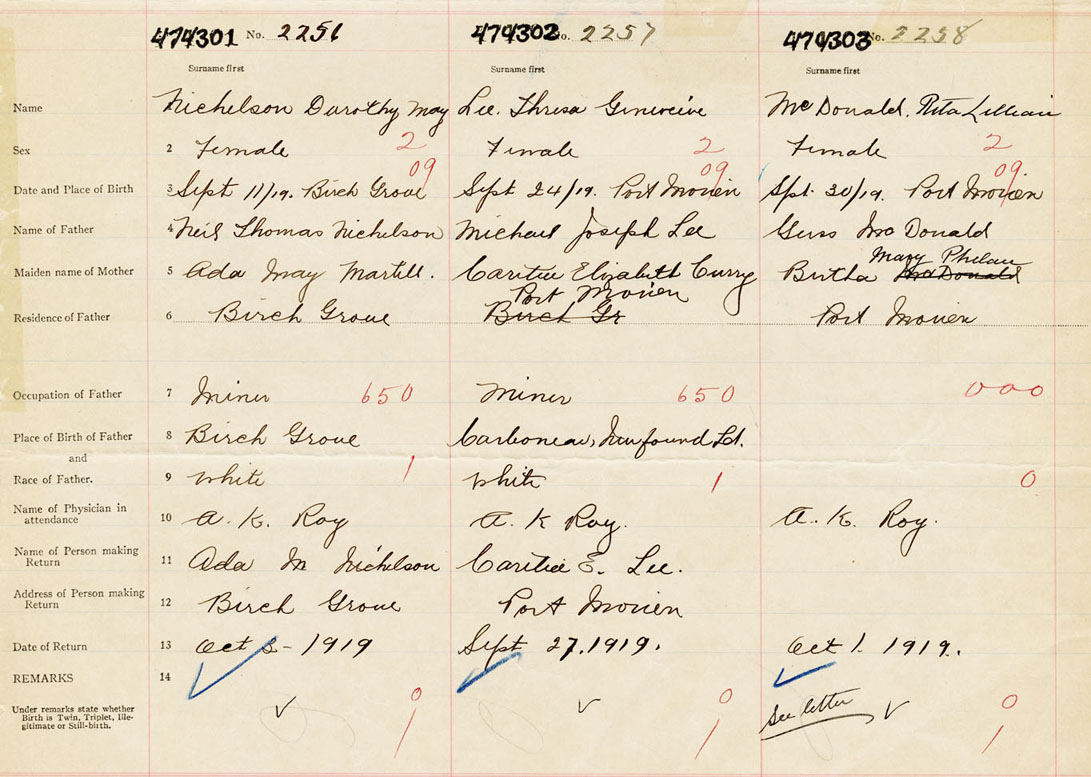 474301 No. 2256 474302 No. 2257 474303 No. 2258
Surname first Surname first Surname first
Name Nichelson Dorothy May Lee. Thresa Genevieve McDonald. Rita Lillian
Sex 2 Female 2 Female 2 Female 2
09 09 09
Date and Place of Birth 3 Sept 11/19. Birch Grove Sept 24/19. Port Morien Spt. 20/19. Port Morien
Name of Father 4 Neil Thomas Nichelson Michael Joseph Lee Guss McDonald
Mary Phelan
Maiden name of Mother 5 Ada May Martell. Elizabeth Curry Birtha McDonald
Port Morien
Residence of Father 6 Birch Grove Birch Gr Port Morien
Occupation of Father 7 Miner 650 Miner 650 000
Place of Birth of Father 8 Birch Grove Carbonear, Newfound Ld.
and
Race of Father. 9 White 1 White 1 0
Name of Physician in
attendance 10 A. K. Roy A. K Roy. A. K. Roy.
Name of Person making
Return 11 Ada M Nichelson E. Lee.
Address of Person making
Return 12 Birch Grove Port Morien
Date of Return 13 Oct 2 - 1919 Sept 27. 1919. Oct 1. 1919.
REMARKS 14
Under remarks state whether
Birth is Twin, Triplet, Ille-
gitimate or Still-birth.
0 0 See letter 0
1 1 1